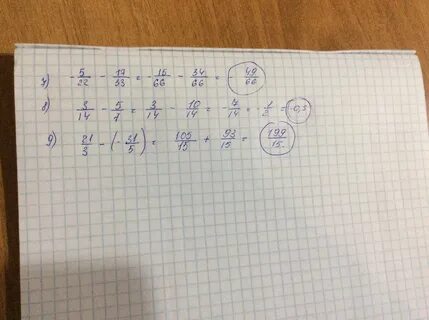 7) - 5/22 - 17/33 = - 15/66 - 34/66 = - 49/66
8) 3/14 - 5/7 = 3/14 - 10/14 = - 7/14 = - 1/2 = -0,5
9) 21/3 - (- 31/5) = 105/15 + 93/15 = 199/15